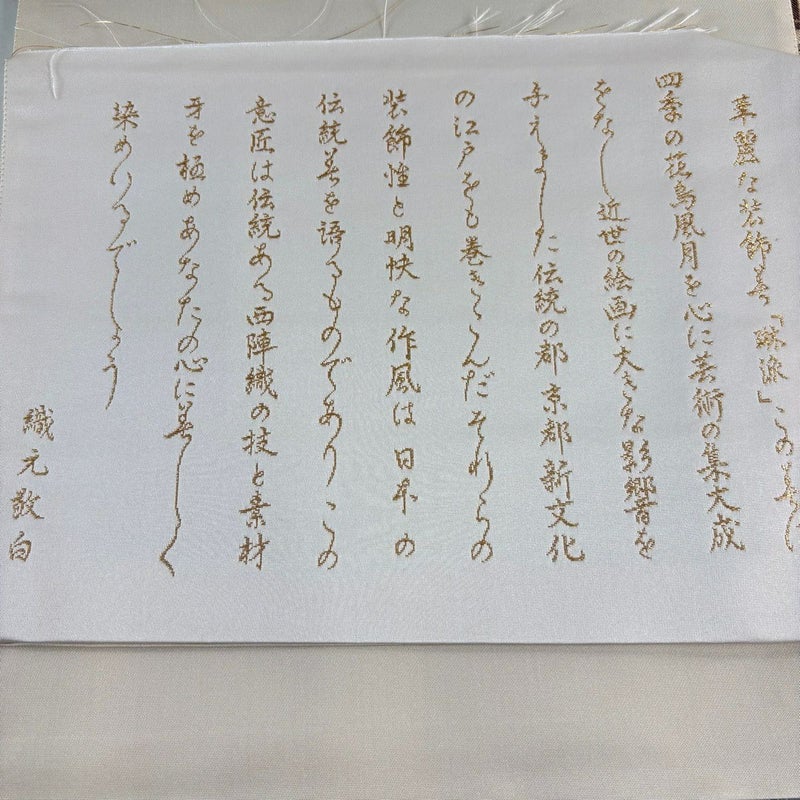 華麗な装飾美「琳派」この美し
四季の花鳥風月を心に芸術の集大成
をなし近世の絵画に大きな影響を
与えました伝統の都京都新文化
の江戸をも巻きこんだそれらの
装飾性と明快な作風は日本の
伝統美を語るものであり この
意匠は伝統ある西陣織の技と素材
を極めあなたの心に美しく
染めいるでしょう
織元敬白